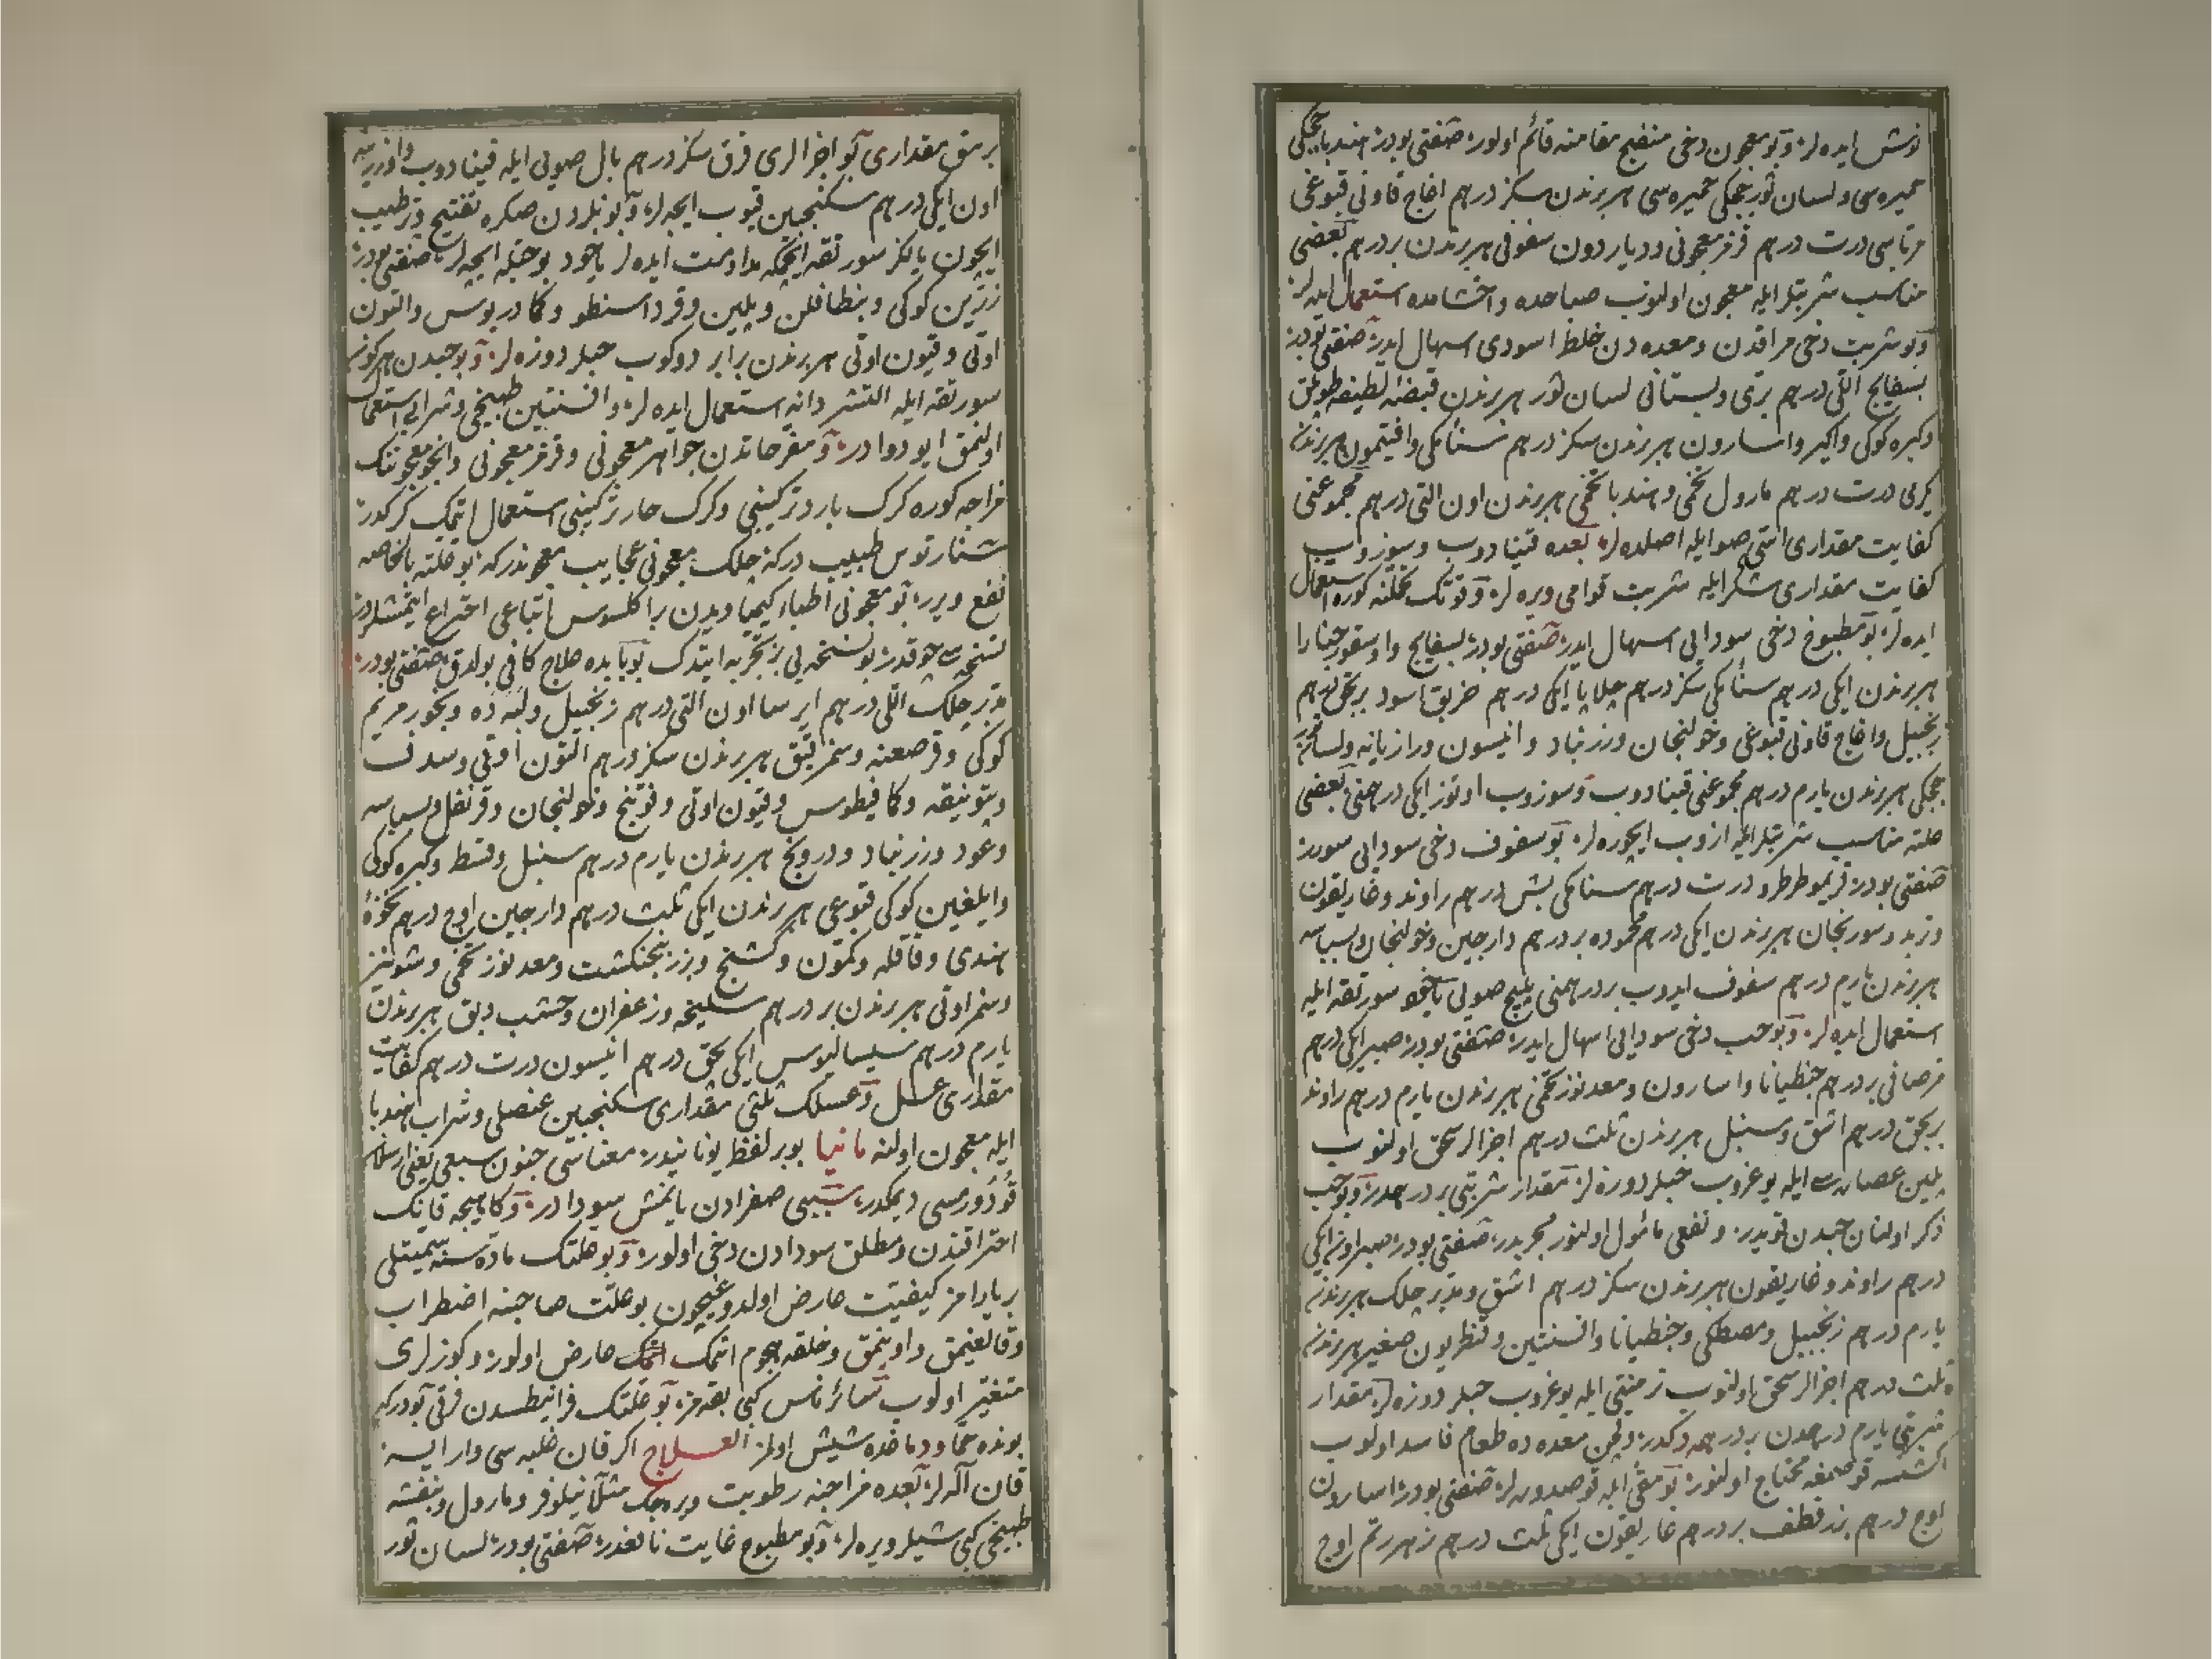 نوش ایده لر و بو معجون دخی منضج مقامنه قائم اولور صنعتی بودر هندبا چچکی
خمیره سی و لسان ثور چچکی خمیره سی هر برندن سکز درهم اغاج قاونی قبوغی
مرباسی درت درهم قرمز معجونی و دیاردون سفوفی هر برندن بر درهم بعضی
مناسب شربتلر ایله معجون اولنوب صباحده و اخشامده استعمال ایده لر
و بو شربت دخی مراقدن و معده دن خلط اسودی اسهال ایدر صنعتی بودر
بسفایج اللی درهم بری و بستانی لسان ثور هر برندن قبضه لطیفه طوطق
و کبره کوکی و اکیر و اسارون هر برندن سکز درهم سنامکی و افتیمون هر برندن
یکرمی درت درهم مارول تخمی و هندبا تخمی هر برندن اون التی درهم مجموعنی
کفایت مقداری اسی صو ایله اصلده لر بعده قینادوب و سوزوب
کفایت مقداری شکر ایله شربت قوامی ویره لر و قوتک تحملنه کوره استعمال
ایده لر بو مطبوخ دخی سودایی اسهال ایدر صنعتی بودر بسفایج و اوسقورجنارا
هر برندن ایکی درهم سنامکی سکز درهم جلاپا ایکی درهم خربق اسود بر بچق درهم
زنجبیل و اغاج قاونی قبوغی و خولنجان و زرنباد و انیسون و رازیانه و لسان ثور
چچکی هر برندن یارم درهم مجموعنی قینادوب و سوزوب اوتوز ایکی درهمنی بعضی
علته مناسب شربتلر ایله ازوب ایچوره لر بو سفوف دخی سودایی سورر
صنعتی بودر قریموطرطرو درت درهم سنامکی بش درهم راوند و غاریقون
و تربد و سورنجان هر برندن ایکی درهم محموده بر درهم دارچین و خولنجان و بسباسه
هر برندن یارم درهم سفوف ایدوب بر درهمنی پلیچ صویی یاخود سورتقه ایله
استعمال ایده لر و بو حب دخی سودایی اسهال ایدر صنعتی بودر صبر ایکی درهم
مرصافی بر درهم جنطیانا و اسارون و معدنوز تخمی هر برندن یارم درهم راوند
بر بچق درهم اشق و سنبل هر برندن ثلث درهم اجزالر سحق اولنوب
پلین عصاره سی ایله یوغروب حبلر دوزه لر مقدار شربتی بر درهمدر و بو حب
ذکر اولنان حبدن قویدر و نفعی مأمول اولنور مجربدر صنعتی بودر صبر اون ایکی
درهم راوند و غاریقون هر برندن سکز درهم اشق و مدبر چلک هر برندن
یارم درهم زنجبیل و مصطکی و جنطیانا و افسنتین و قنطریون صغیر هر برندن
ثلث درهم اجزالر سحق اولنوب ترمنتی ایله یوغروب حبلر دوزه لر مقدار
شربتی یارم درهمدن بر درهمه دکدر و لکن معده ده طعام فاسد اولوب
اکشیسه قوصمغه محتاج اولنور بو مقی ایله قوصدوره لر صنعتی بودر اسارون
اوچ درهم بزر قطف بر درهم غاریقون ایکی ثلث درهم زهر رتم اوچ
برمق مقداری بو اجزالری قرق سکز درهم بال صویی ایله قینادوب و اوزرینه
اون ایکی درهم سکنجبین قیوب ایچه لر و بونلردن صکره تفتیح و ترطیب
ایچون یالکز سورتقه ایچمکه مداومت ایده لر یاخود بو حبله ایچه لر صنعتی بودر
زرین کوکی و بنطافلن و پلین و قرداسنطو و کمادریوس و التون
اوتی و قیون اوتی هر برندن برابر دوکوب حبلر دوزه لر و بو حبدن هر کون
سورتقه ایله التشر دانه استعمال ایده لر و افسنتین طبیخی و شرابی استعمال
اولنمق ایو دوادر و مفرحاتدن جواهر معجونی و قرمز معجونی و انجو معجونک
مزاجه کوره کرک بارد ترکیبنی و کرک حار ترکیبنی استعمال ایتمک کرکدر
شنارتوس طبیب درکه چلک معجونی عجایب معجوندرکه بو علته بالخاصه
نفع ویرر بو معجونی اطباء کیمیا ویدن براکلسوس اتباعی اختراع ایتمشلردر
نسخه سی چوقدر بو نسخه یی بز تجربه ایتدک بو بابده علاج کافی بولدق صنعتی بودر
مدبر چلک اللی درهم ایرسا اون التی درهم زنجبیل و لبه ده و بخور مریم
کوکی و قرصعنه و سمز قبق هر برندن سکز درهم التون اوتی و سدف
و بتونیقه و کمافیطوس و قیون اوتی و فوتنج و خولنجان و قرنفل و بسباسه
و عود و زرنباد و درونج هر برندن یارم درهم سنبل و قسط و کبره کوکی
و ایلغین کوکی قبوغی هر برندن ایکی ثلث درهم دارچین اوچ درهم جوزه
هندی و قاقله و کمون و کشنیج و بزر بنجنکشت و معدنوز تخمی و شونیز
و سمز اوتی هر برندن بر درهم سلیخه و زعفران و خشب دبق هر برندن
یارم درهم سیسالیوس ایکی بچق درهم انیسون درت درهم کفایت
مقداری عسل و عسلک ثلثی مقداری سکنجبین عنصلی و شراب هندبا
ایله معجون اولنه مانیا بو بر لفظ یونانیدر معناسی جنون سبعی یعنی ارسلان
قودورمسی دیمکدر سببی صفرادن یانمش سودادر و کاهیجه قانک
احتراقندن و مطلق سودادن دخی اولور و بو علتک ماده سنه سمیتلی
بر یارامز کیفیت عارض اولدوغیچون بو علت صاحبنه اضطراب
و قالغیمق و اوینمق و خلقه هجوم اتمک اتمک عارض اولور و کوزلری
متغیر اولوب سائر ناس کبی بقه مز بو علتک فرانیطسدن فرقی بودرکه
بونده حما و دماغده شیش اولمز العلاج اکر قان غلبه سی وار ایسه
قان آله لر بعده مزاجنه رطوبت ویره جک مثلا نیلوفر و مارول و بنفشه
طبیخی کبی شیلر ویره لر و بو مطبوخ غایت نافعدر صنعتی بودر لسان ثور